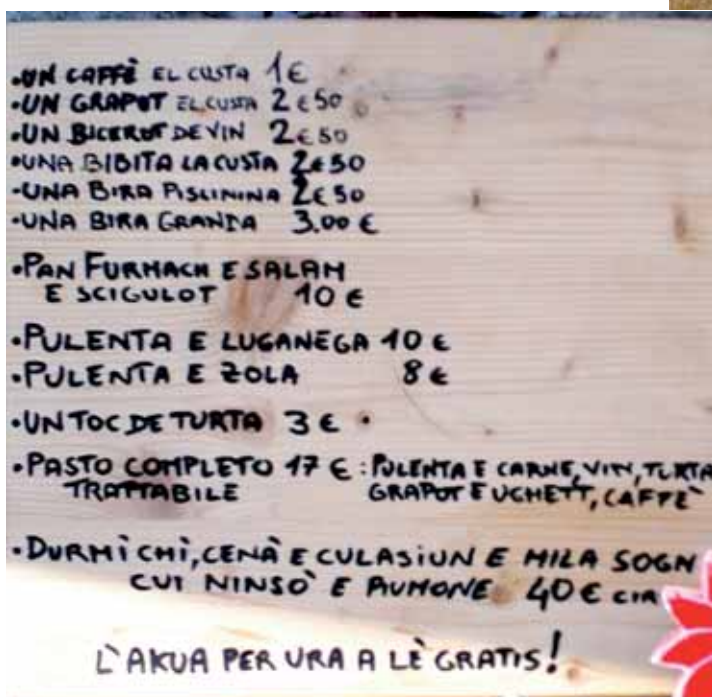 •UN CAFFÈ EL CUSTA 1€
•UN GRAPOT EL CUSTA 2€50
•UN BICEROT DE VIN 2€50
•UNA BIBITA LA CUSTA 2€50
-UNA BIRA PISCININA 2€50
•UNA BIRA GRANDA 3.00 €
•PAN FURMACH E SALAM
E SCIGULOT 10 €
•PULENTA E LUGANEGA 10 €
•PULENTA E ZOLA 8 €
•UN TOC DE TURTA 3 €
•PASTO COMPLETO 17 € : PULENTA E CARNE, VIN, TURTA
TRATTABILE GRAPOT E UGHETT, CAFFE`
•DURMÌ CHÌ, CENÀ E CULASIUN E MILA SOGN
CUI NINSÒ E PIUMONE 40 €
L'AKUA PER URA A LÈ GRATIS!